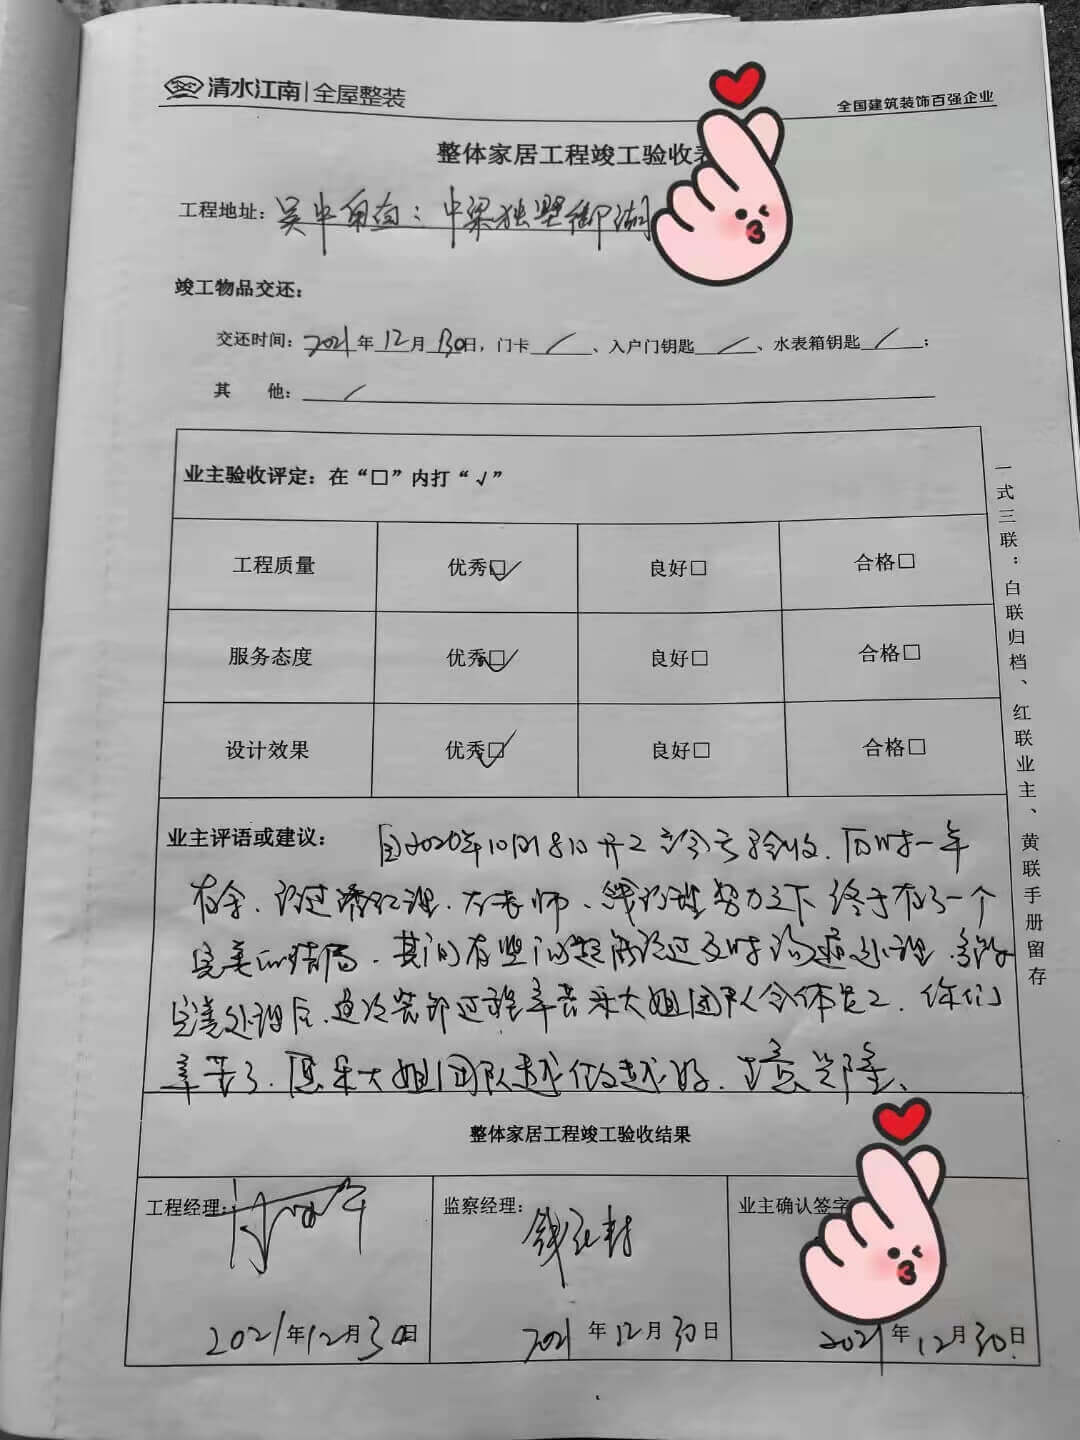 清水江南|全屋整装
全国建筑装饰百强企业
整体家居工程竣工验收
工程地址：吴中 中梁独墅御湖
竣工物品交还：
交还时间：2021年12月30日，门卡 / 、入户门钥匙 / 、水表箱钥匙 / ；
其 他： /
业主验收评定：在“□”内打“√”
工程质量 优秀☑ 良好□ 合格□
服务态度 优秀☑ 良好□ 合格□
设计效果 优秀☑ 良好□ 合格□
一式三联：白联归档、红联业主、黄联手册留存
业主评语或建议： 自2020年10月18日开工 验收．历时一年
有余． 老师、钱经理努力之下 终于有了一个
完美的结局．其间有些问题 通过及时 处理．
完美处理后． 过程辛苦朱大姐团队全体员工．你们
辛苦了．愿朱大姐团队越做越好．生意兴隆、
整体家居工程竣工验收结果
工程经理：
监察经理：
业主确认签字
2021年12月30日
2021年12月30日
2021年12月30日